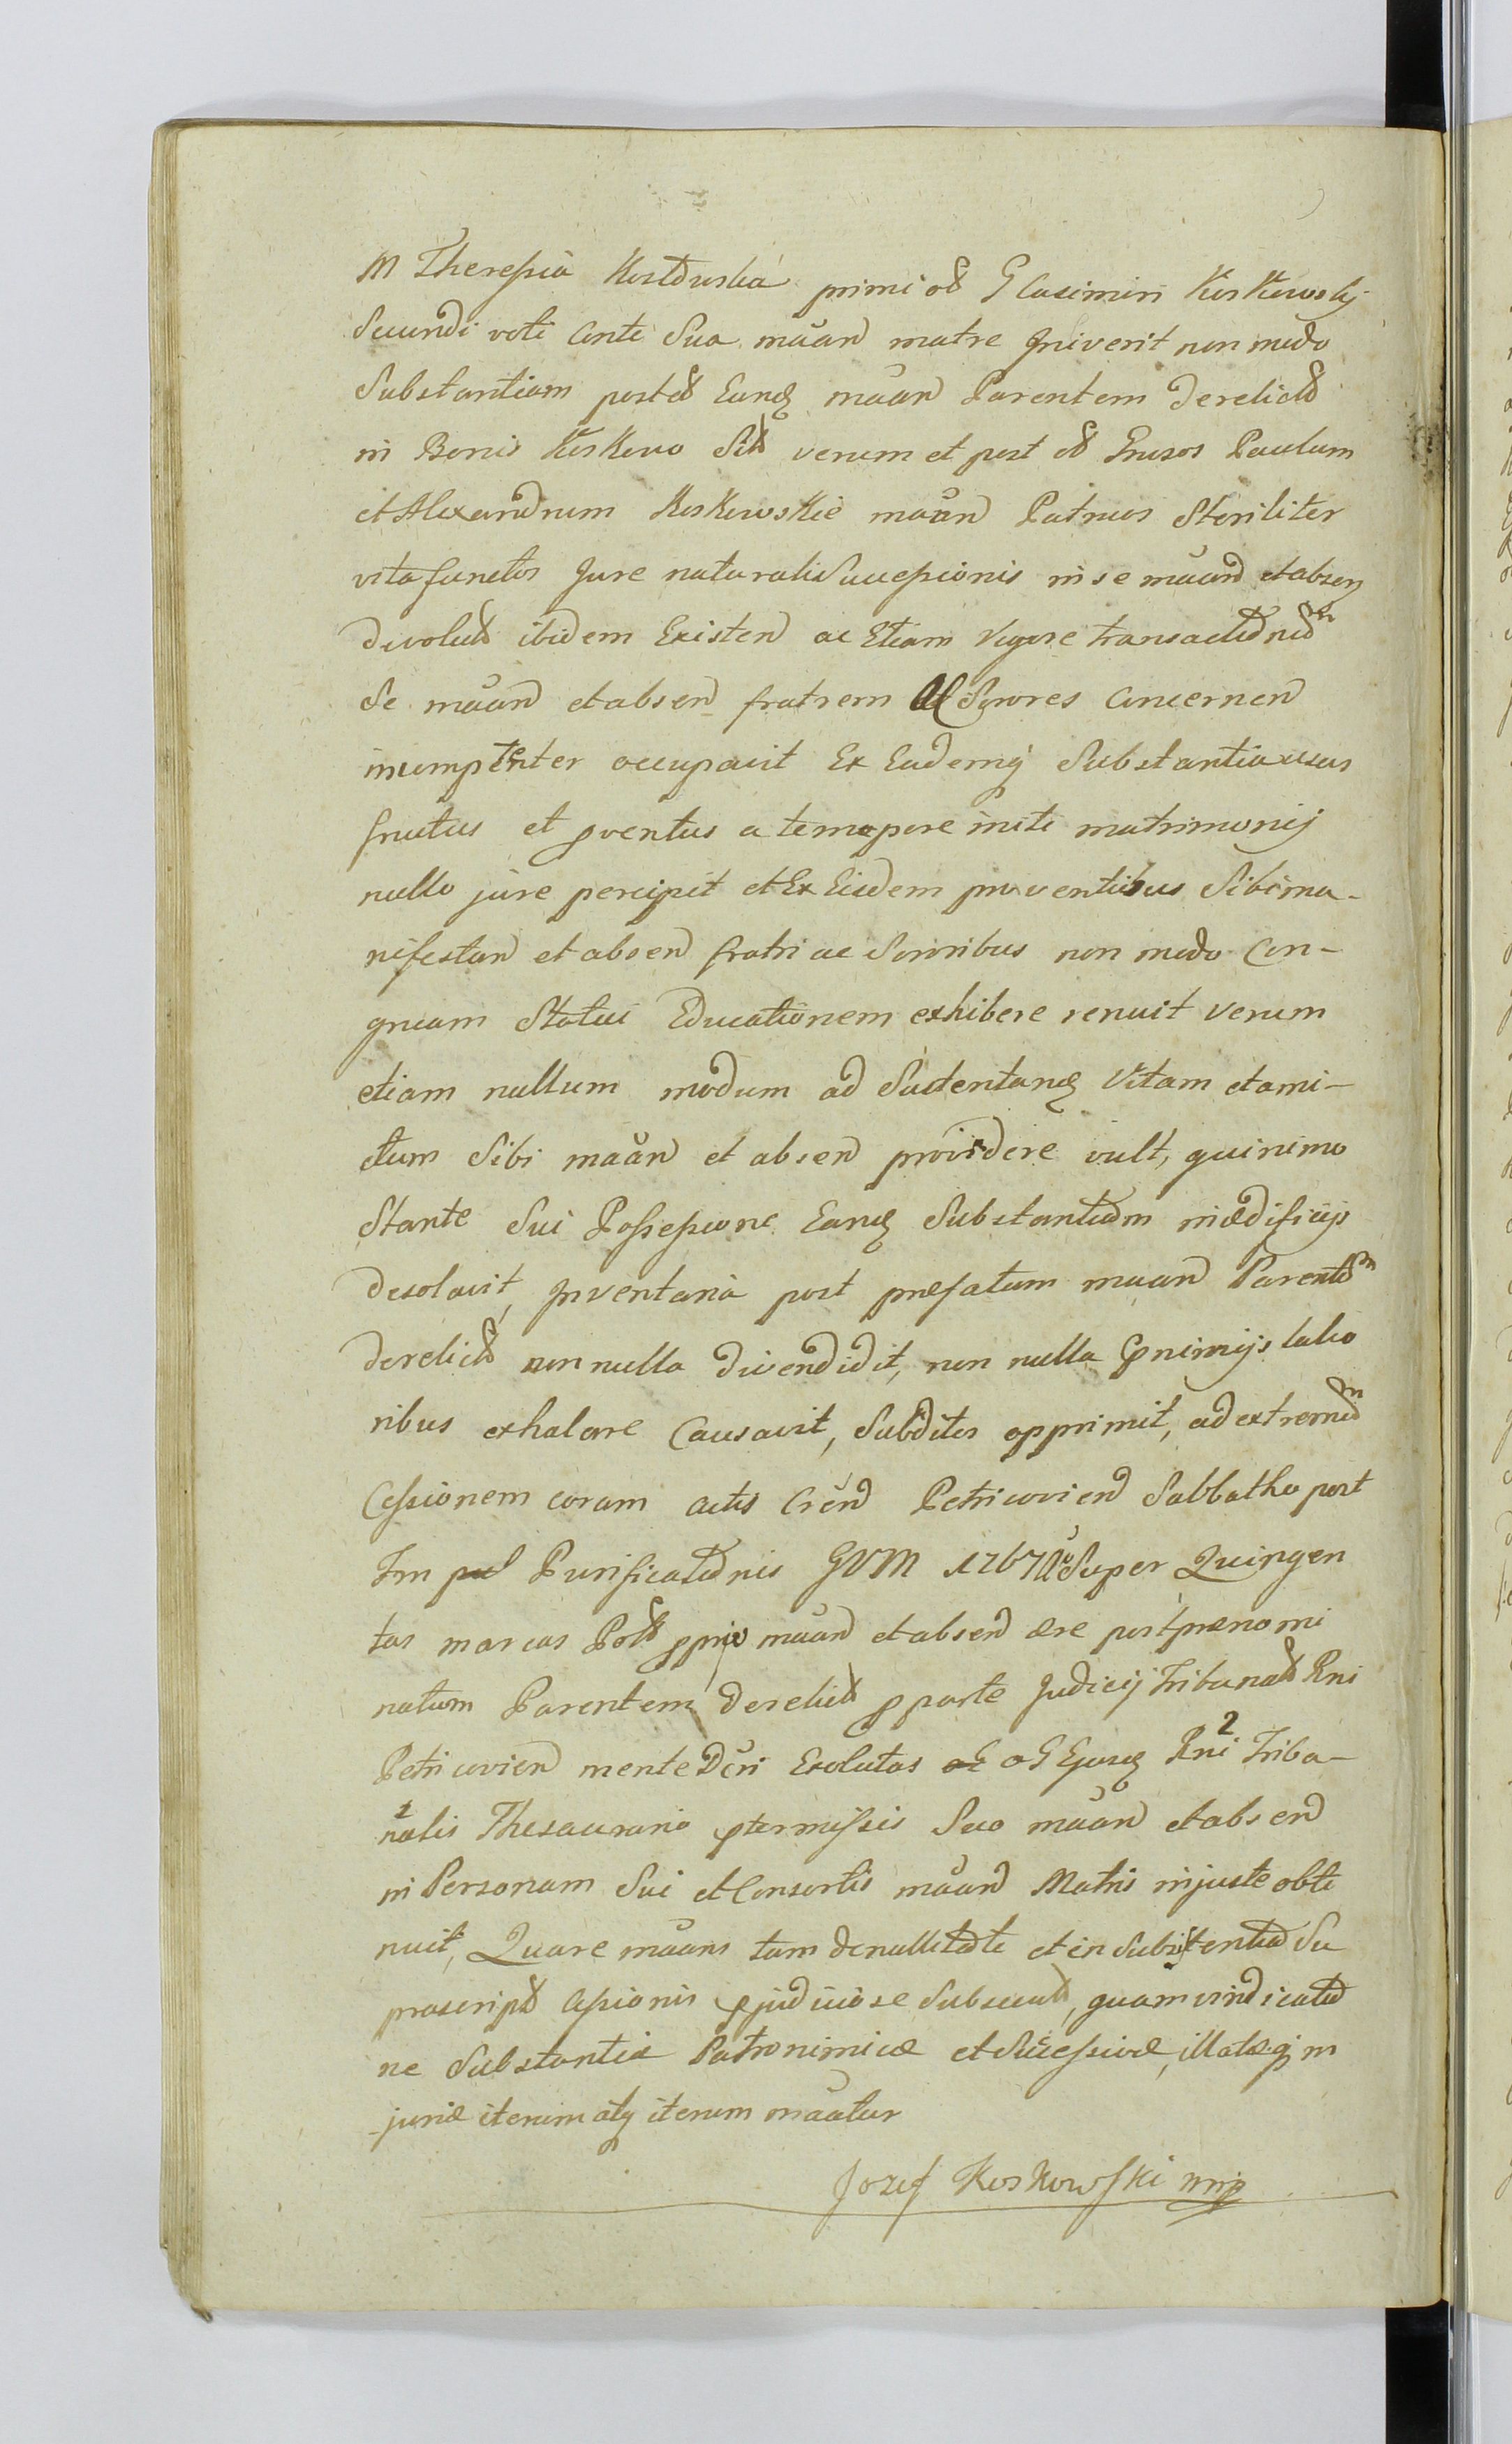 M Theresia Kostowska primi od G Casimiri Koskowsky
Secundi voti Conte Sua maan matre Iniverit non modo
Substantiam post od Eunq maan Parentem derelict
in Bonis Koskowo Sit verum et post od Gnusos Paulum
et Alexandrum Koskowskie maan Patruos Steriliter
vita functos Jure naturalis Successionis in se maan et absen
devolut ibidem Existen ac Etiam Vigore transactionum
Se maan et absen fratrem ac Sorores Concernen
incompetenter occupavit Ex Eademq Substantia usus
fructus et pventus a tempore initi matrimonij
nullo jure percipit et Ex Eisdem proventibus Sibi ma-
nifestan et absen fratri ac Sororibus non modo Con-
gruam Statui Educationem exhibere renuit verum
etiam nullum modum ad Sustentanq Vitam et ami-
ctum Sibi maan et absen providere vult, quinimo
Stante Sui Possessione Eanq Substantiam in ædificijs
desolavit, Inventaria post præfatum maan Parentem
derelict non nulla divendidit, non nulla p nimijs labo
ribus exhalare Causavit, Subditos opprimit, ad extremum
Cessionem coram actis Cren Petricovien Sabbatho post
Fm Purificationis GVM 1767 A Super Quingen
tas marcas Pol pprio maan et absen ære post prænomi
natum Parentem derelict p parte Judicij Tribunal Rni
Petricovien mente Dcri Exolutas a G Ejusq Rni 2 Tribu-
nalis Thesaurario ptermissis Suo maan et absen
in Personam Sui et Consortis maan Matris injuste obti
nuit, Quare maans tam de nullitate et in Subsistentia Su
prascript Cessionis pjudiciose Subsecut, quam vindicatio
ne Substantiæ Patronimicæ et Successivæ, illatæq in
juriæ iterum atq iterum maatur
Jozef Koskowski mp